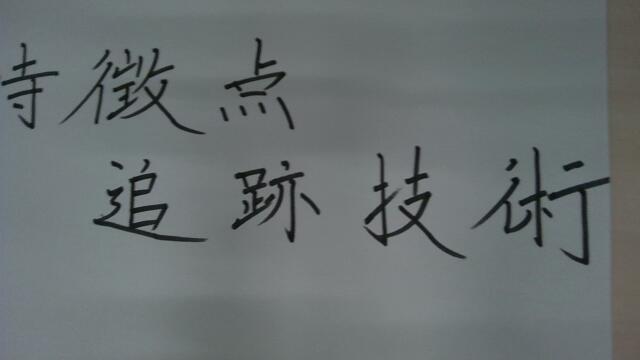 特徴点
追跡技術